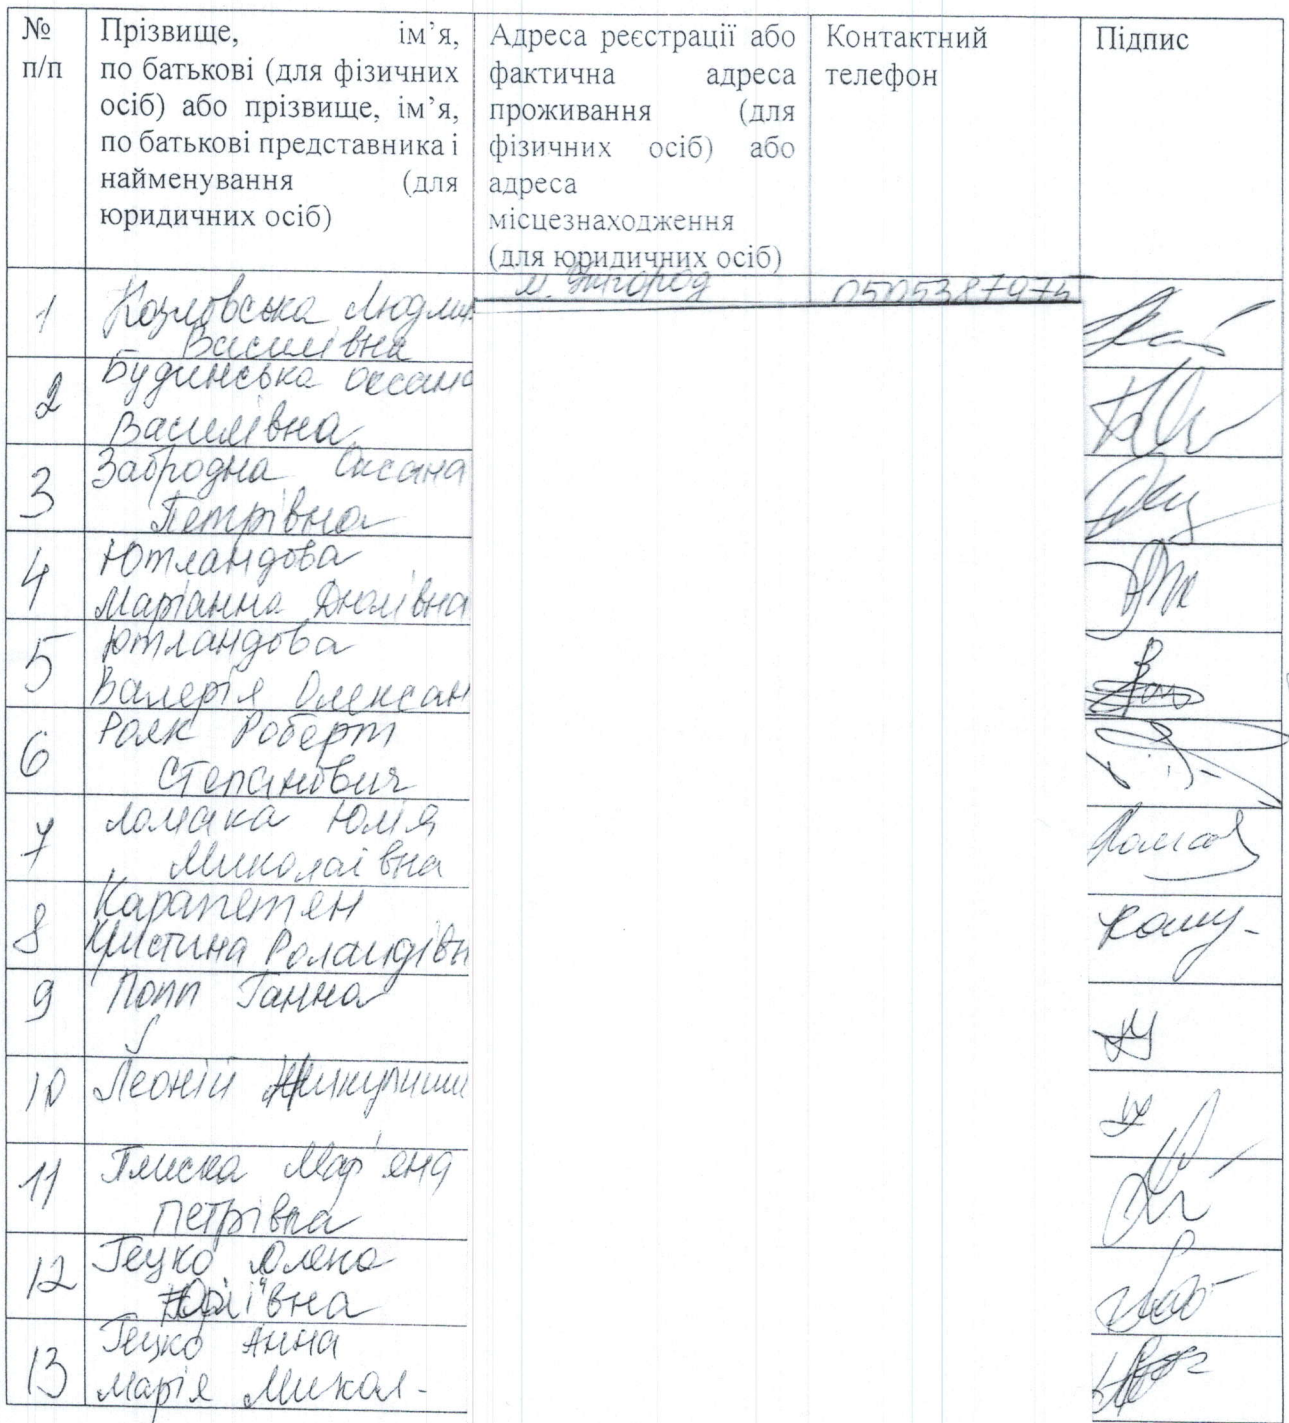 № п/п
Прізвище, ім’я,
по батькові (для фізичних
осіб) або прізвище, ім’я,
по батькові представника і
найменування (для
юридичних осіб)
Адреса реєстрації або
фактична адреса
проживання (для
фізичних осіб) або
адреса
місцезнаходження
(для юридичних осіб)
Контактний
телефон
Підпис
1
Козловська Людми
Василівна
м. Ужгород
0505387975
2
Будинська Оксана
Василівна
3
Забродна Оксана
Петрівна
4
Ютландова
Маріанна Дюлівна
5
Ютландова
Валерія Олексан
6
Роляк Роберт
Степанович
7
Ломака Юлія
Миколаївна
8
Карапетян
Кристина Роландівн
9
Попп Ганна
10
Леоній
11
Плиска Мар'яна
Петрівна
12
Гецко Олена
Юріївна
13
Гецко Анна
Марія Микол-